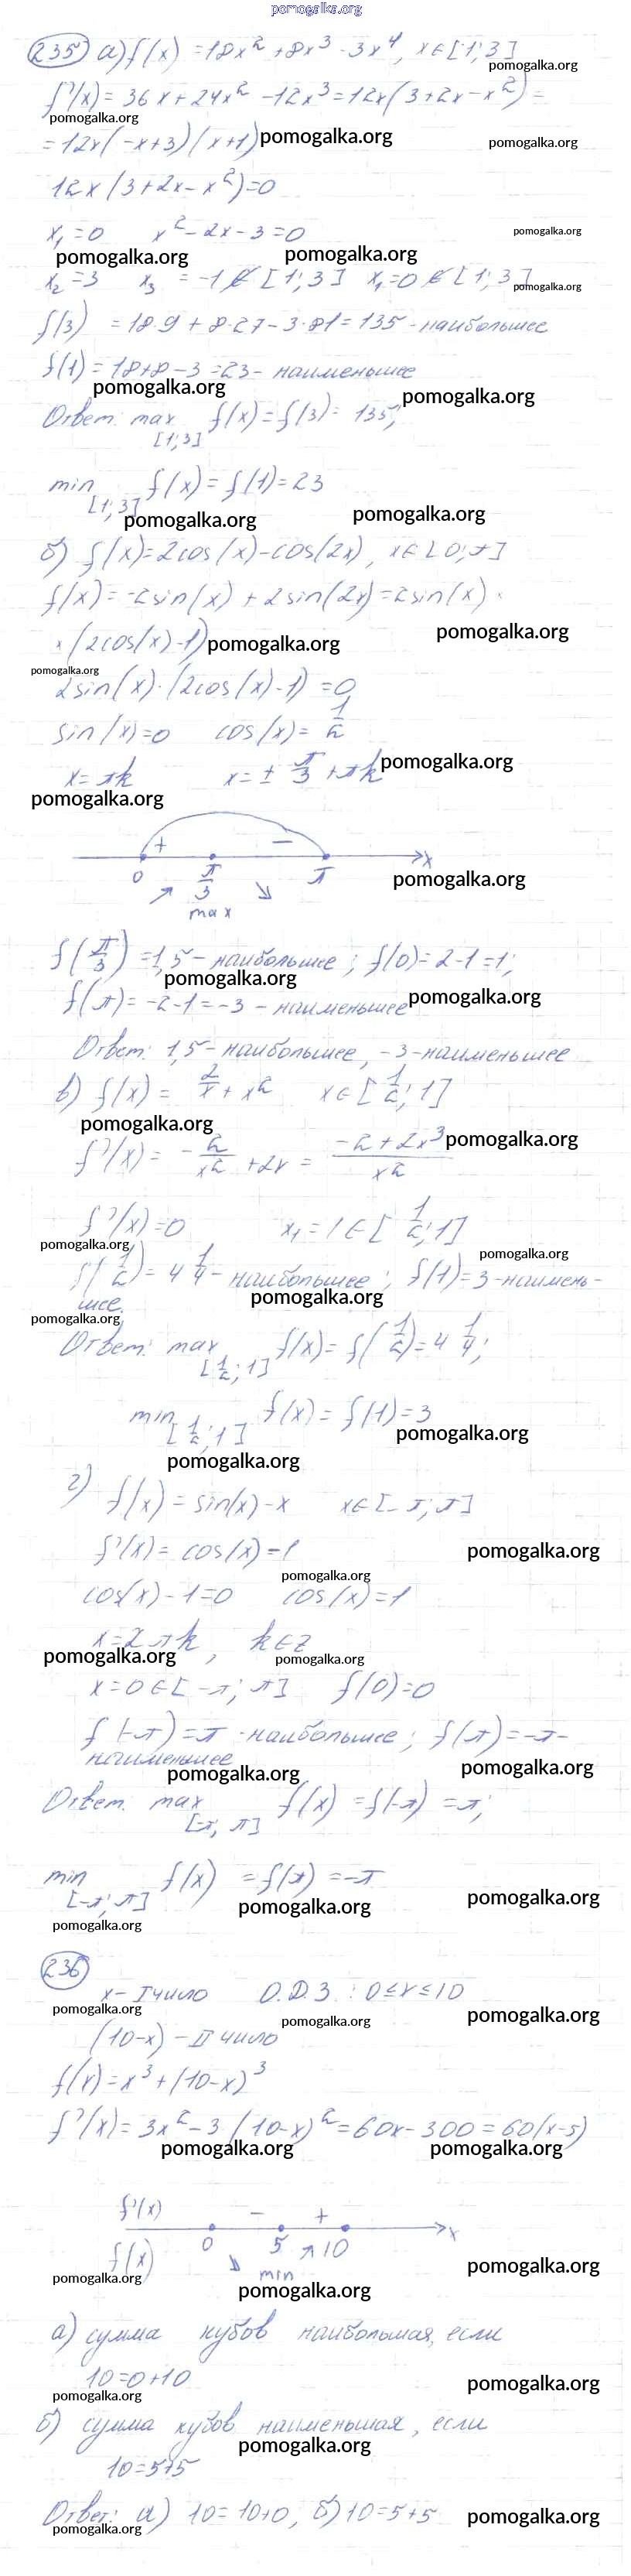 pomogalka.org
235 а) f(x) = 18x² + 8x³ - 3x⁴, x∈[1; 3]
pomogalka.org
f'(x) = 36x + 24x² - 12x³ = 12x(3 + 2x - x²) =
pomogalka.org
= 12x(-x+3)(x+1) pomogalka.org pomogalka.org
12x(3+2x-x²)=0
x₁ = 0 x² - 2x - 3 = 0 pomogalka.org
pomogalka.org pomogalka.org
x₂ = 3 x₃ = -1 ∉ [1; 3] x₁ = 0 ∉ [1; 3] pomogalka.org
f(3) = 18·9 + 8·27 - 3·81 = 135 - наибольшее
f(1) = 18+8-3 = 23 - наименьшее
pomogalka.org pomogalka.org
Ответ: max f(x) = f(3) = 135;
[1; 3]
min f(x) = f(1) = 23
[1; 3]
pomogalka.org pomogalka.org
б) f(x) = 2cos(x) - cos(2x), x∈[0; π]
f(x) = -2sin(x) + 2sin(2x) = 2sin(x) ·
× (2cos(x)-1) pomogalka.org pomogalka.org
pomogalka.org
2sin(x)·(2cos(x)-1) = 0
sin(x) = 0 cos(x) = 1/2
x = πk x = ± π/3 + πk pomogalka.org
pomogalka.org
+ −
0 π/3 π x
pomogalka.org
max
f(π/3) = 1,5 - наибольшее; f(0) = 2-1 = 1;
pomogalka.org
f(π) = -2-1 = -3 - наименьшее pomogalka.org
Ответ: 1,5 - наибольшее, -3 - наименьшее
в) f(x) = 2/x + x² x∈[1/2; 1]
pomogalka.org pomogalka.org
f'(x) = -2/x² + 2x = (-2+2x³)/x²
f'(x) = 0 x₁ = 1 ∈ [1/2; 1]
pomogalka.org pomogalka.org
f(1/2) = 4 1/4 - наибольшее; f(1) = 3 - наимень-
шее. pomogalka.org
pomogalka.org
Ответ: max f(x) = f(1/2) = 4 1/4;
[1/2; 1]
min f(x) = f(1) = 3
[1/2; 1] pomogalka.org
pomogalka.org
г) f(x) = sin(x) - x x∈[-π; π]
f'(x) = cos(x) - 1 pomogalka.org
pomogalka.org
cos(x) - 1 = 0 cos(x) = 1
x = 2πk, k∈z
pomogalka.org pomogalka.org
x = 0 ∈ [-π; π] f(0) = 0
f(-π) = π - наибольшее; f(π) = -π -
наименьшее
pomogalka.org pomogalka.org
Ответ: max f(x) = f(-π) = π;
[-π; π]
min f(x) = f(π) = -π
[-π; π] pomogalka.org pomogalka.org
pomogalka.org
236
x - I число О.Д.З.: 0≤x≤10
pomogalka.org pomogalka.org pomogalka.org
(10-x) - II число
f(x) = x³ + (10-x)³
f'(x) = 3x² - 3(10-x)² = 60x - 300 = 60(x-5)
pomogalka.org pomogalka.org
f'(x) − +
0 5 10 x
f(x) min pomogalka.org
pomogalka.org pomogalka.org
а) сумма кубов наибольшая, если
10=0+10 pomogalka.org
pomogalka.org
б) сумма кубов наименьшая, если
pomogalka.org
10=5+5
Ответ: а) 10=10+0, б) 10=5+5 pomogalka.org
pomogalka.org